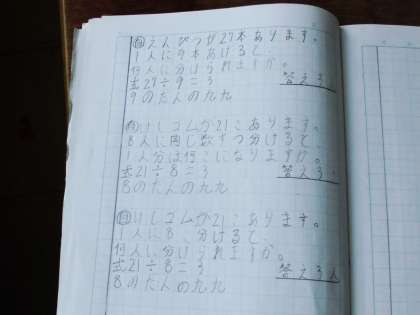 問えんぴつが27本あります。
1人に9本あげると、
何人に分けられますか。
式27÷9=3 答え3人
9のだんの九九
問けしゴムが24こあります。
8人に同じ数ずつ分けると、
1人分は何こになりますか。
式24÷8=3 答え3こ
8のだんの九九
問けしゴムが24こあります。
1人に8 分けると、
何人に分けられますか。
式24÷8=3 答え3人
8のだんの九九